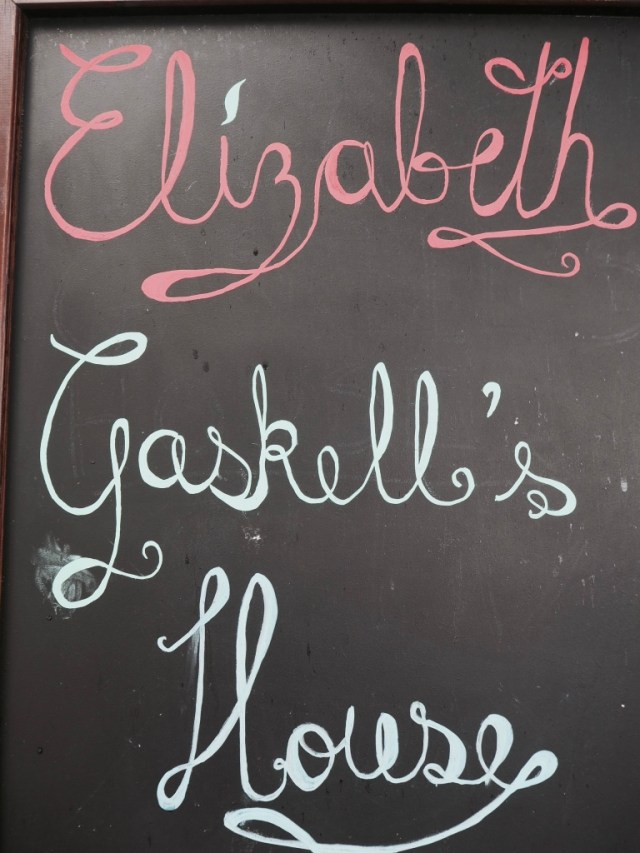 Elizabeth
Gaskell's
House